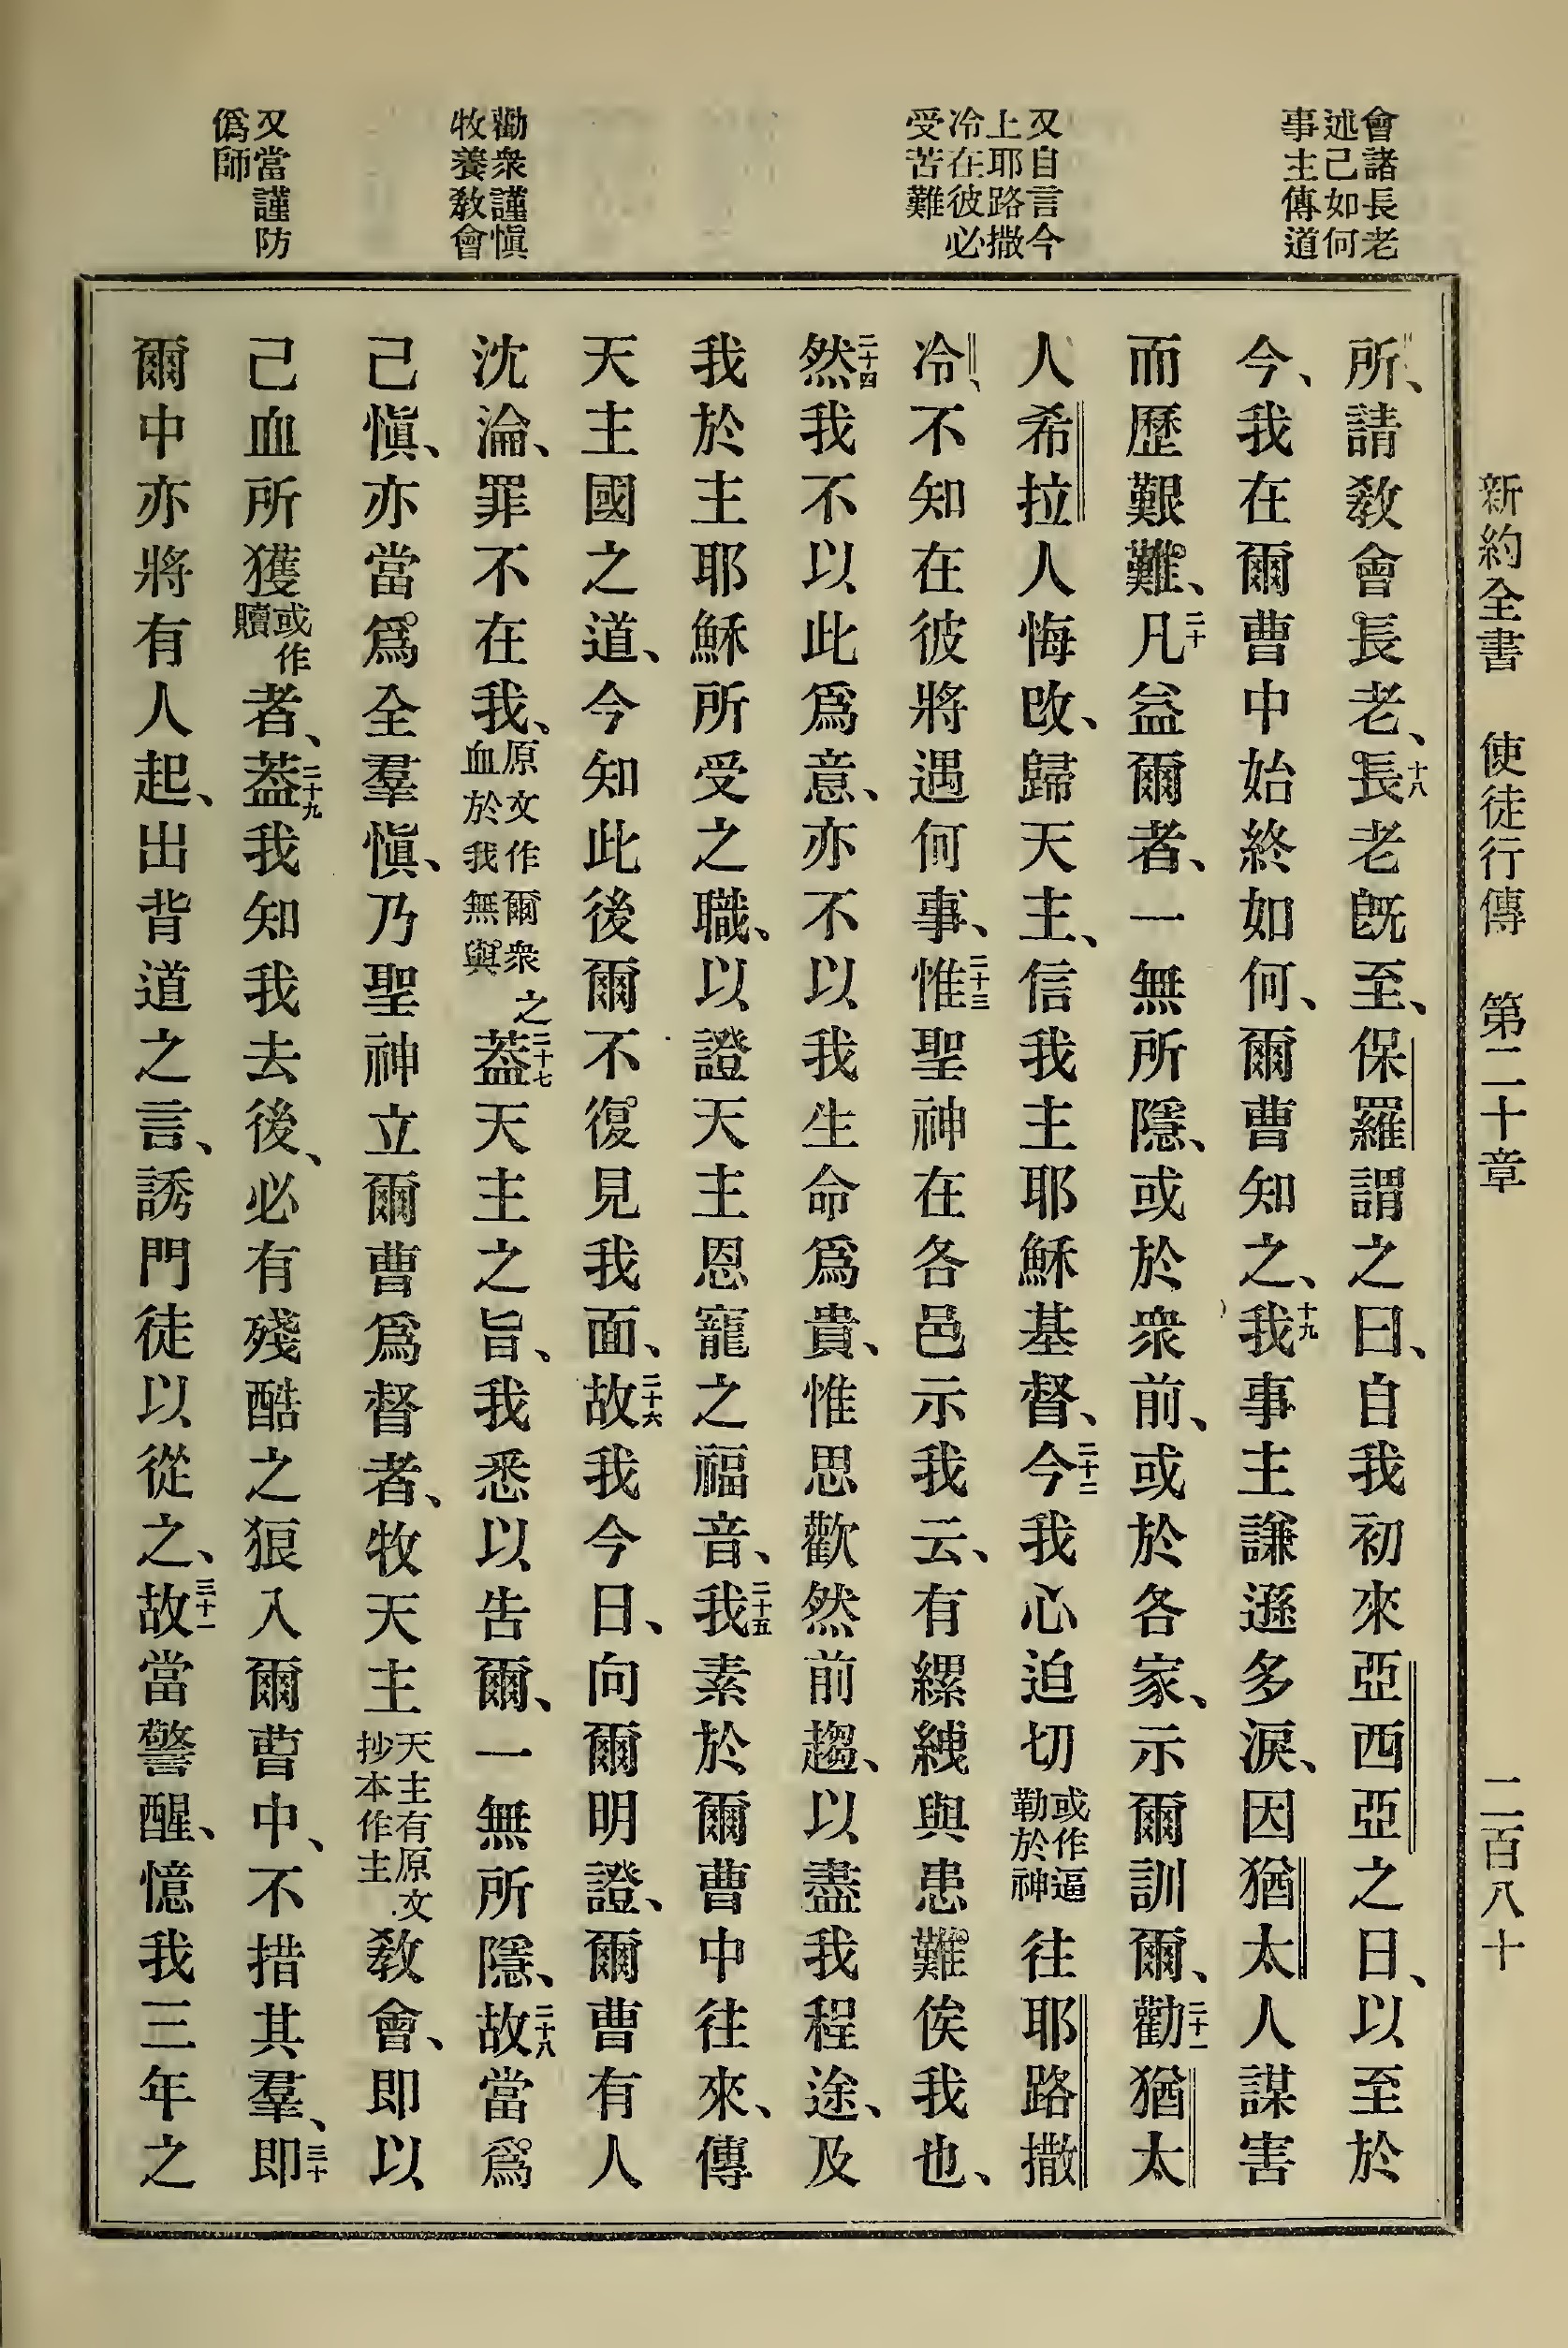 新約全書 使徒行傳 第二十章 二百八十
會諸長老
述己如何
事主傳道
又自言今
上耶路撒
冷在彼必
受苦難
勸衆謹慎
牧養教會
又當謹防
僞師
所、請教會長老、十八長老旣至、保羅謂之曰、自我初來亞西亞之日、以至於
今、我在爾曹中始終如何、爾曹知之、十九我事主謙遜多淚、因猶太人謀害
而歷艱難、二十凡益爾者、一無所隱、或於衆前、或於各家、示爾訓爾、二十一勸猶太
人希拉人悔改、歸天主、信我主耶穌基督、二十二今我心迫切或作逼勒於神往耶路撒
冷、不知在彼將遇何事、二十三惟聖神在各邑示我云、有縲絏與患難俟我也、
二十四然我不以此爲意、亦不以我生命爲貴、惟思歡然前趨、以盡我程途、及
我於主耶穌所受之職、以證天主恩寵之福音、二十五我素於爾曹中往來、傳
天主國之道、今知此後爾不復見我面、二十六故我今日、向爾明證、爾曹有人
沈淪、罪不在我、原文作爾衆之血於我無與二十七蓋天主之旨、我悉以告爾、一無所隱、二十八故當爲
己慎、亦當爲全羣慎、乃聖神立爾曹爲督者、牧天主天主有原文抄本作主教會、即以
己血所獲或作贖者、二十九蓋我知我去後、必有殘酷之狼入爾曹中、不措其羣、三十即
爾中亦將有人起、出背道之言、誘門徒以從之、三十一故當警醒、憶我三年之